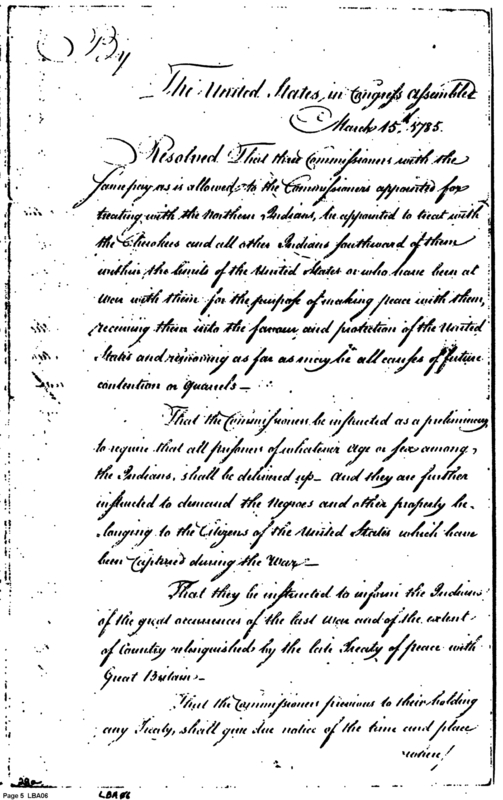 By
The United States in Congress Assembled
March 15th. 1785.
Resolved That three Commissioners with the
same pay as is allowed to the Commissioners appointed for
treating with the Northern Indians, be appointed to treat with
the Cherokees and all other Indians southward of them
within the limits of the United States or who have been at
War with them for the purpose of making peace with them,
receiving them into the favour and protection of the United
States and removing as far as may be all causes of future
contention or quarrels—
That the Commissioners be instructed as a preliminary
to require that all prisoners of whatever age or sex among
the Indians, shall be delivered up— And they are further
instructed to demand the Negroes and other property be-
longing to the Citizens of the United States which have
been Captured during the War—
That they be instructed to inform the Indians
of the great occurrences of the last War and of the extent
of Country relinquished by the late Treaty of peace with
Great Britain—
That the Commissioners previous to their holding
any Treaty, shall give due notice of the time and place
Page 5 LBA06
LBA 06